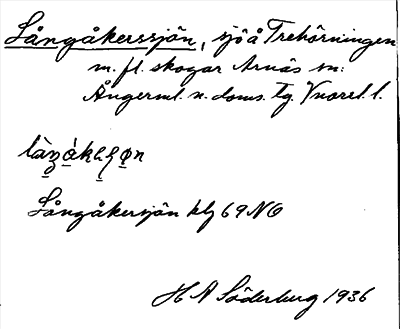 Långåkerssjön, sjö å Trehörningen
m. fl. skogar Arnäs sn:
Ångerml. n. doms. tg. Vnorrl. l.
Långåkersjön klj 69 NO
H A Söderberg 1936